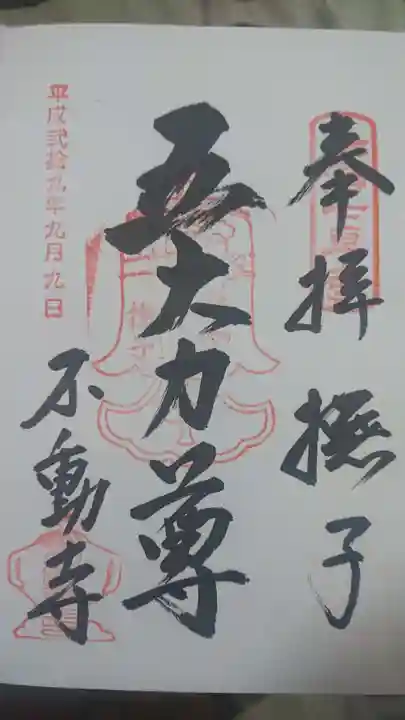 奉拝 撫子
五大力尊
不動寺
平成弐拾九年九月九日